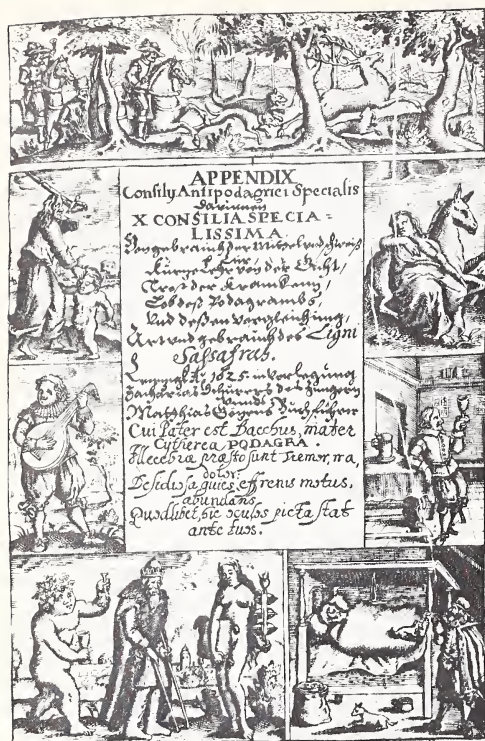 APPENDIX
Consilij Antipodagrici Specialis
Darinnen
X CONSILIA SPECIA=
LISSIMA.
Von gebrauch der Mittel
Kur,
Kurtze Lehr von der Gicht,
Trost der Krancken,
Lob deß Podagrambs,
Und deßen vergleichung,
Art und gebrauch des Ligni
Sassafras.
Leipzig A. 1625. in verlegung
Zachariae des Jungern
Unndt
Matthias Götzens Buchführer
Cui Pater est Bacchus, mater
Cytherea PODAGRA.
Illecebræ præsto sunt Tremor, ira,
dolor:
Desidiosa quies, effrenis motus,
abundans
Quodlibet, sic oculos picta stat
ante tuos.